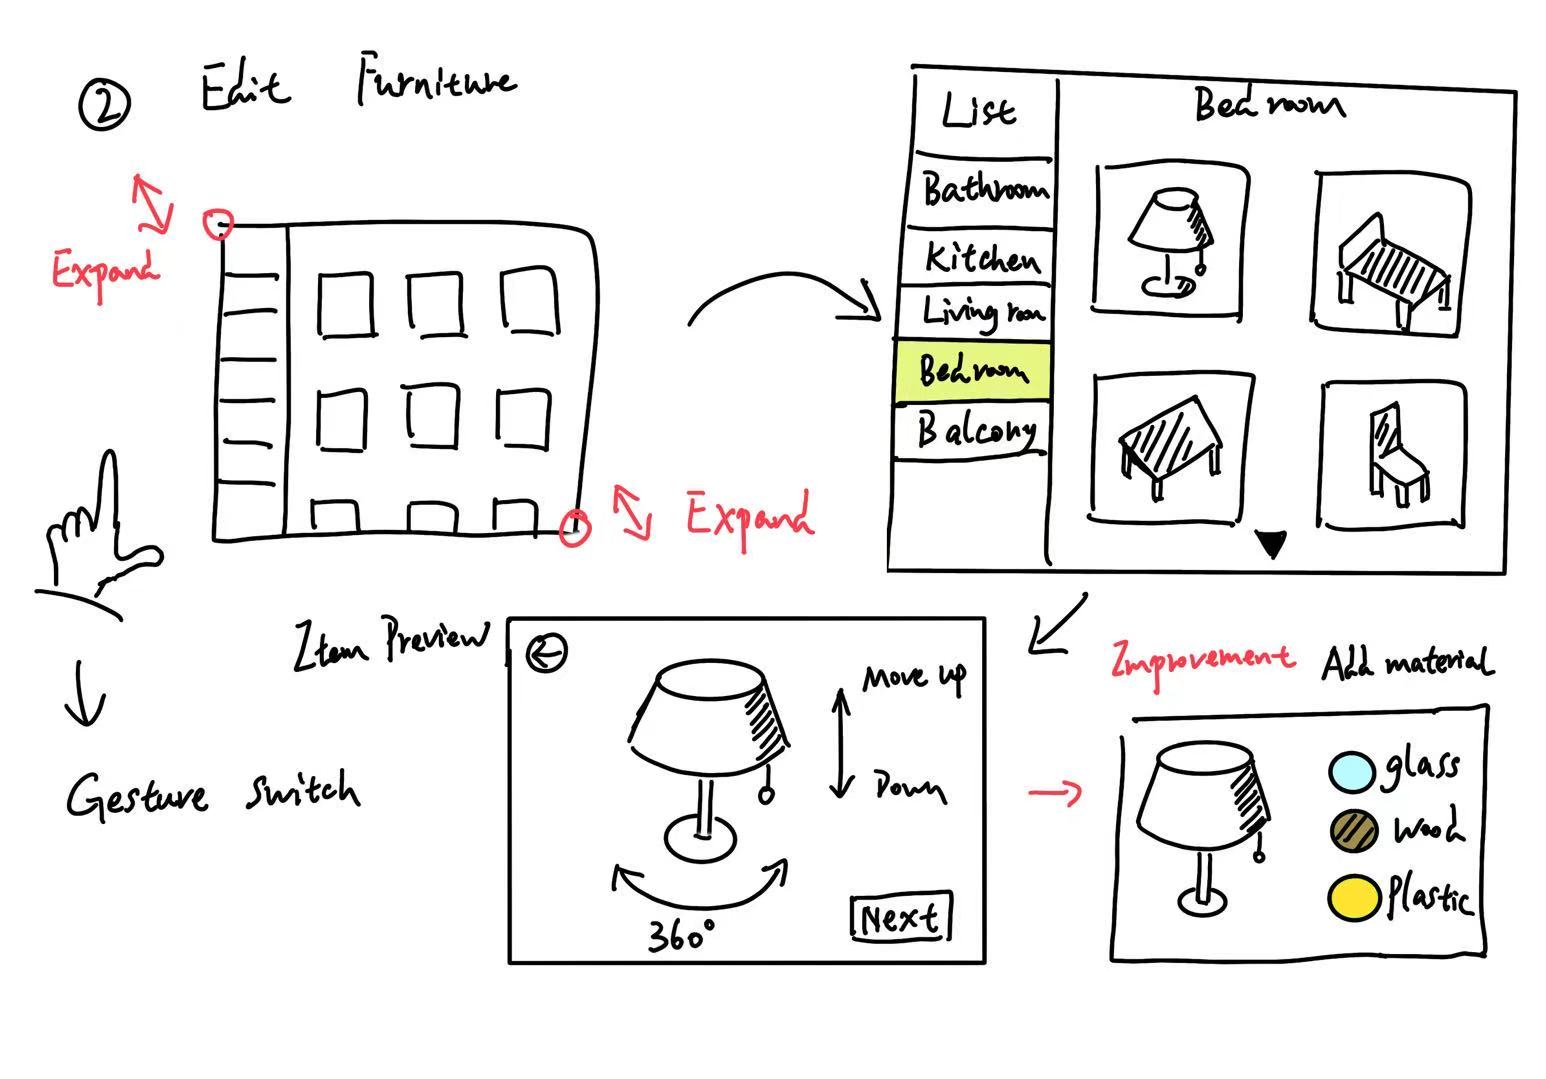 ② Edit Furniture
Expand
Expand
Gesture switch
List
Bathroom
Kitchen
Living room
Bedroom
Balcony
Bedroom
Item Preview
Move up
Down
360°
Next
Improvement Add material
glass
wood
Plastic